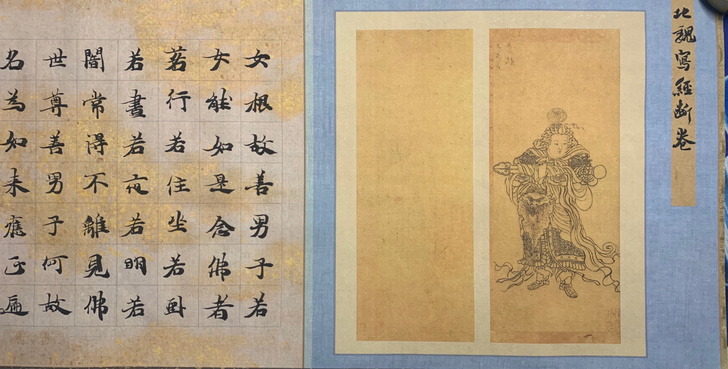 北魏寫經断卷
女根故善男子若
女能如是念佛者
若行若住坐若卧
若晝若夜若明若
闇常得不離見佛
世尊善男子何故
名為如来應正遍